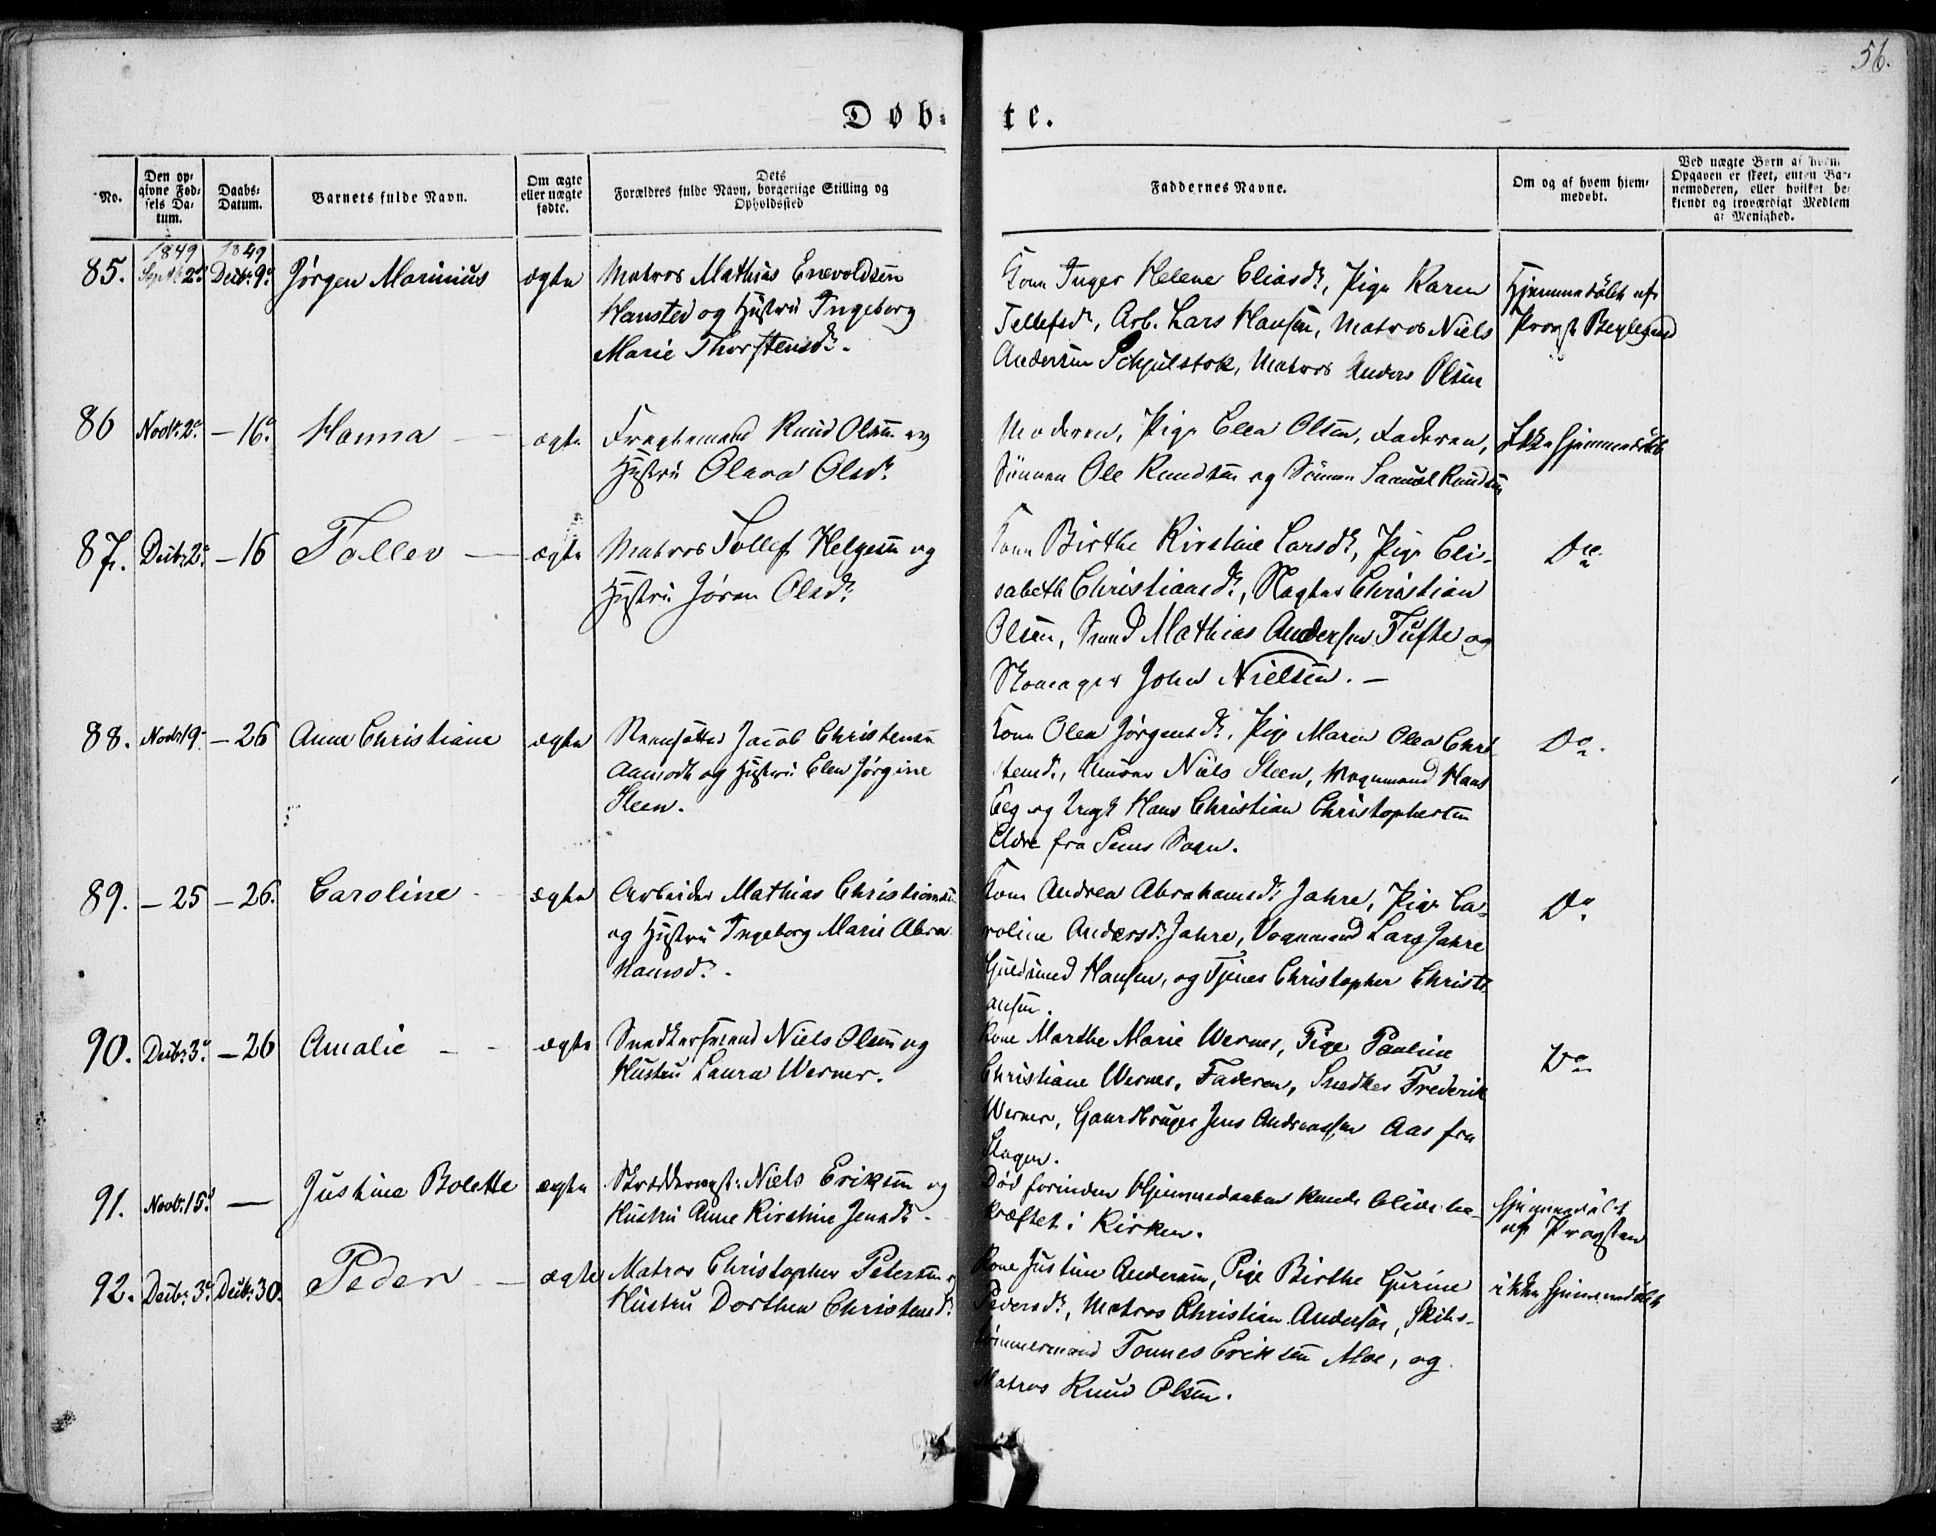 56.
Døb-te.
No.
Den op-
givne Fød-
sels Da-
tum.
Daabs-
Datum.
Barnets fulde Navn.
Om ægte
eller uægte
fødte.
Dets
Forældres fulde Navn, borgerlige Stilling og
Opholdssted
Faddernes Navne.
Om og af hvem hjem-
medøbt.
Ved uægte Børn af hvem
Opgaven er skeet, enten Bar-
nemoderen, eller hvilket be-
kjendt og troværdigt Medlem
af Menighed.
1849 1849
85. Septbr 2d Decbr. 9d Jørgen Marinius ægte Matros Mathias Enevoldsen
Hansted og Hustru Ingeborg
Marie Thorstensdr.
Kone Inger Helene Eliasdr, Pige Karen
Tellefsdr, Arb. Lars Hansen, Matros Niels
Andersen Schjulstok, Matros Anders Olsen
Hjemmedøbt af
Provst
86 Novbr. 2d — 16d Hanna — ægte Fragtemand Knud Olsen og
Hustru Olava Olsdr
Moderen, Pige Elen Olsen, Faderen,
Sønnen Ole Knudsen og Sønnen Samuel Knudsen
Ikke hjemmedøbt
87. Decbr. 2d — 16 Tollev — ægte Matros Tollef Helgesen og
Hustru Jøran Olsdr
Kone Birthe Kirstine Larsdr, Pige Eli-
sabeth Christiansdr, Slagter Christian
Olsen, Svend Mathias Andersen Tufte og
Skomager John Nielsen. —
Do
88. Novbr. 19. — 26 Anne Christiane ægte Jacob Christensen
Aamodt og Hustru Elen Jørgine
Steen.
Kone Olea Jørgensdr, Pige Maren Olea Chri-
stensdr, Murer Niels Steen, Vognmand Hans
Eeg og Hans Christian Christophersen
fra Sems Sogn.
Do.
89. — 25 — 26. Caroline — ægte Arbeider Mathias Christiansen
og Hustru Ingeborg Marie Abra
hamsdr.
Kone Andrea Abrahamsdr Jahre, Pige Ca-
roline Andersdr Jahre, Vognmand Lars Jahre
Guldsmed Hansen, og Tjener Christopher Christi
ansen.
Do
90. Decbr. 3d — 26 Amalie — - ægte Snedkersvend Niels Olsen og
Hustru Laura Werner.
Kone Marthe Marie Werner, Pige Pauline
Christiane Werner, Faderen, Snedker Frederik
Werner, Gaardbruger Jens Andreassen Aas fra
Slagen.
Do
91. Novbr. 15d — Justine Bolette ægte Skræddermstr. Niels Eriksen og
Hustru Anne Kirstine Jensdr.
Død forinden Hjemmedaaben kunde blive be-
kræftet i Kirken.
hjemmedøbt
af Provsten
92. Decbr. 3d Decbr. 30. Peder — ægte Matros Christopher Petersen og
Hustru Dorthea Christensdr
Kone Justine Andersen, Pige Birthe Gurine
Pedersdr, Matros Christian Andersen, Skibs-
tømmermand Tønnes Eriksen Moe, og
Matros Knud Olsen.
ikke hjemmedøbt